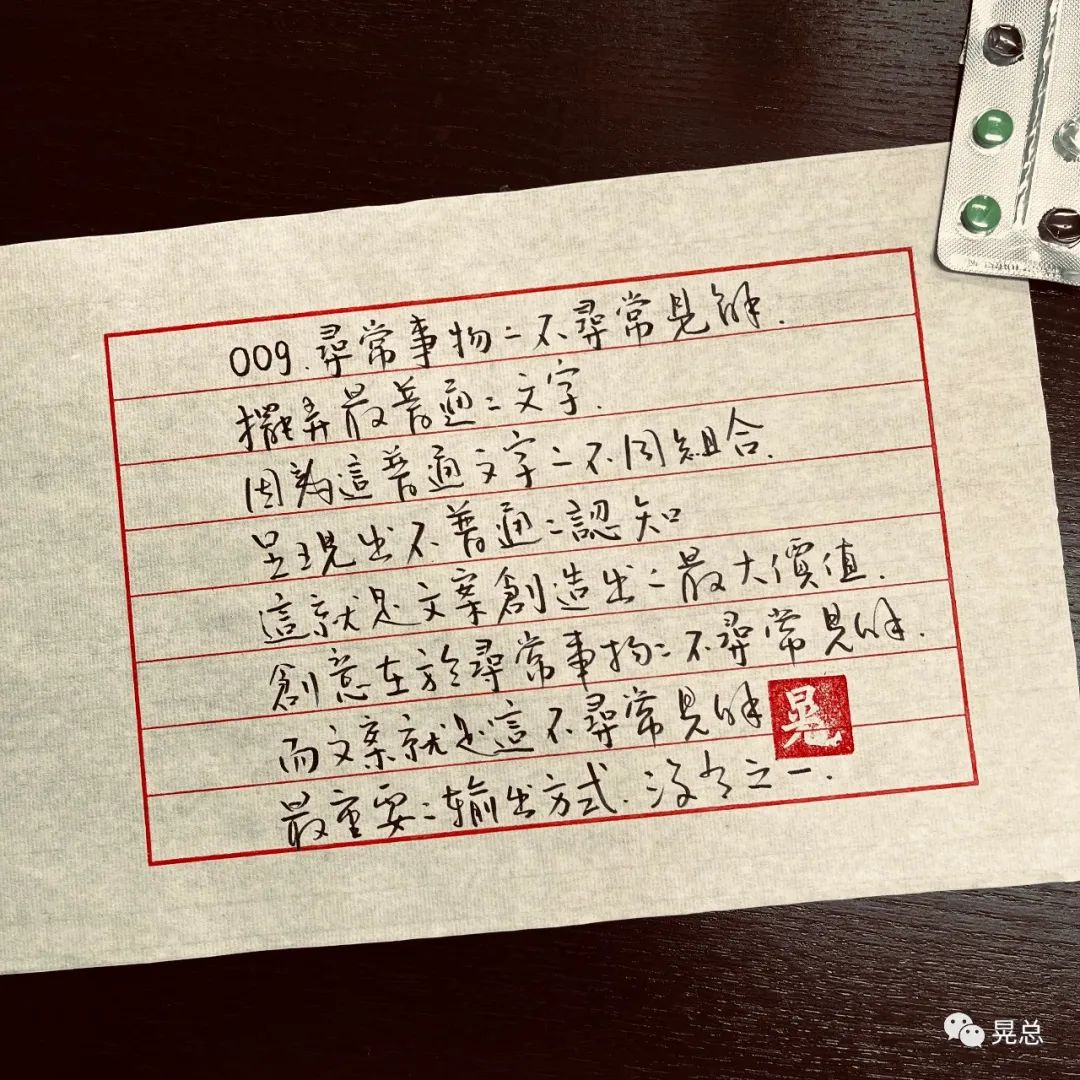 009.尋常事物=不尋常見解.
擺弄最普通=文字.
因為這普通文字=不同組合.
呈現出不普通=認知
這就是文案創造出=最大價值.
創意在於尋常事物=不尋常見解.
而文案就是這不尋常見解
晃
最重要=輸出方式.沒有之一.
晃总